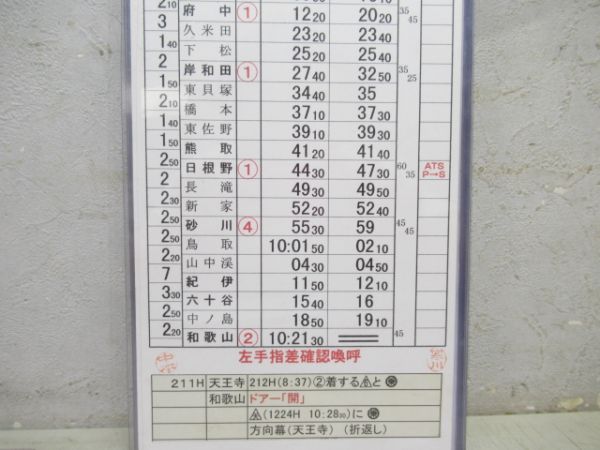 2 10 府中 ① 12 20 20 20 35 45
3 久米田 23 20 23 40
1 40 下松 25 20 25 40
2 岸和田 ① 27 40 32 50 35 25
2 東貝塚 34 40 35
2 10 橋本 37 10 37 30
1 40 東佐野 39 10 39 30
1 50 熊取 41 20 41 40
2 50 日根野 ① 44 30 47 30 60 35 ATS P→S
2 長滝 49 30 49 50
2 30 新家 52 20 52 40
2 50 砂川 ④ 55 30 59 45 45
2 50 鳥取 10:01 50 02 10
2 20 山中渓 04 30 04 50
7 紀伊 11 50 12 10
3 30 六十谷 15 40 16
2 50 中ノ島 18 50 19 10
2 20 和歌山 ② 10:21 30 45
左手指差確認喚呼
211H 天王寺 212H(8:37)②着する と
和歌山 ドアー「開」
(1224H 10:28 30)に
方向幕(天王寺) (折返し)